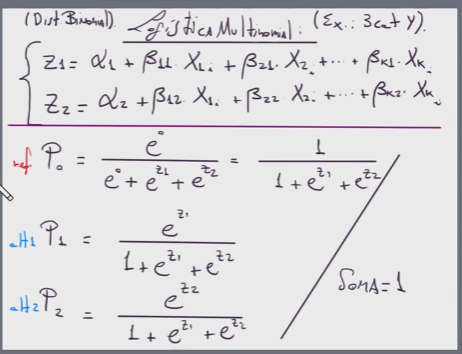 (Dist Binomial). Logística Multinomial: (Ex.: 3cat Y).
Z1 = α1 + β11. X1i + β21. X2i + ... + βk1. Xki
Z2 = α2 + β12. X1i + β22 X2i + ... + βk2. Xki
ref P0 = e^0 / (e^0 + e^Z1 + e^Z2) = 1 / (1 + e^Z1 + e^Z2)
eH1 P1 = e^Z1 / (1 + e^Z1 + e^Z2)
SOMA = 1
eH2 P2 = e^Z2 / (1 + e^Z1 + e^Z2)